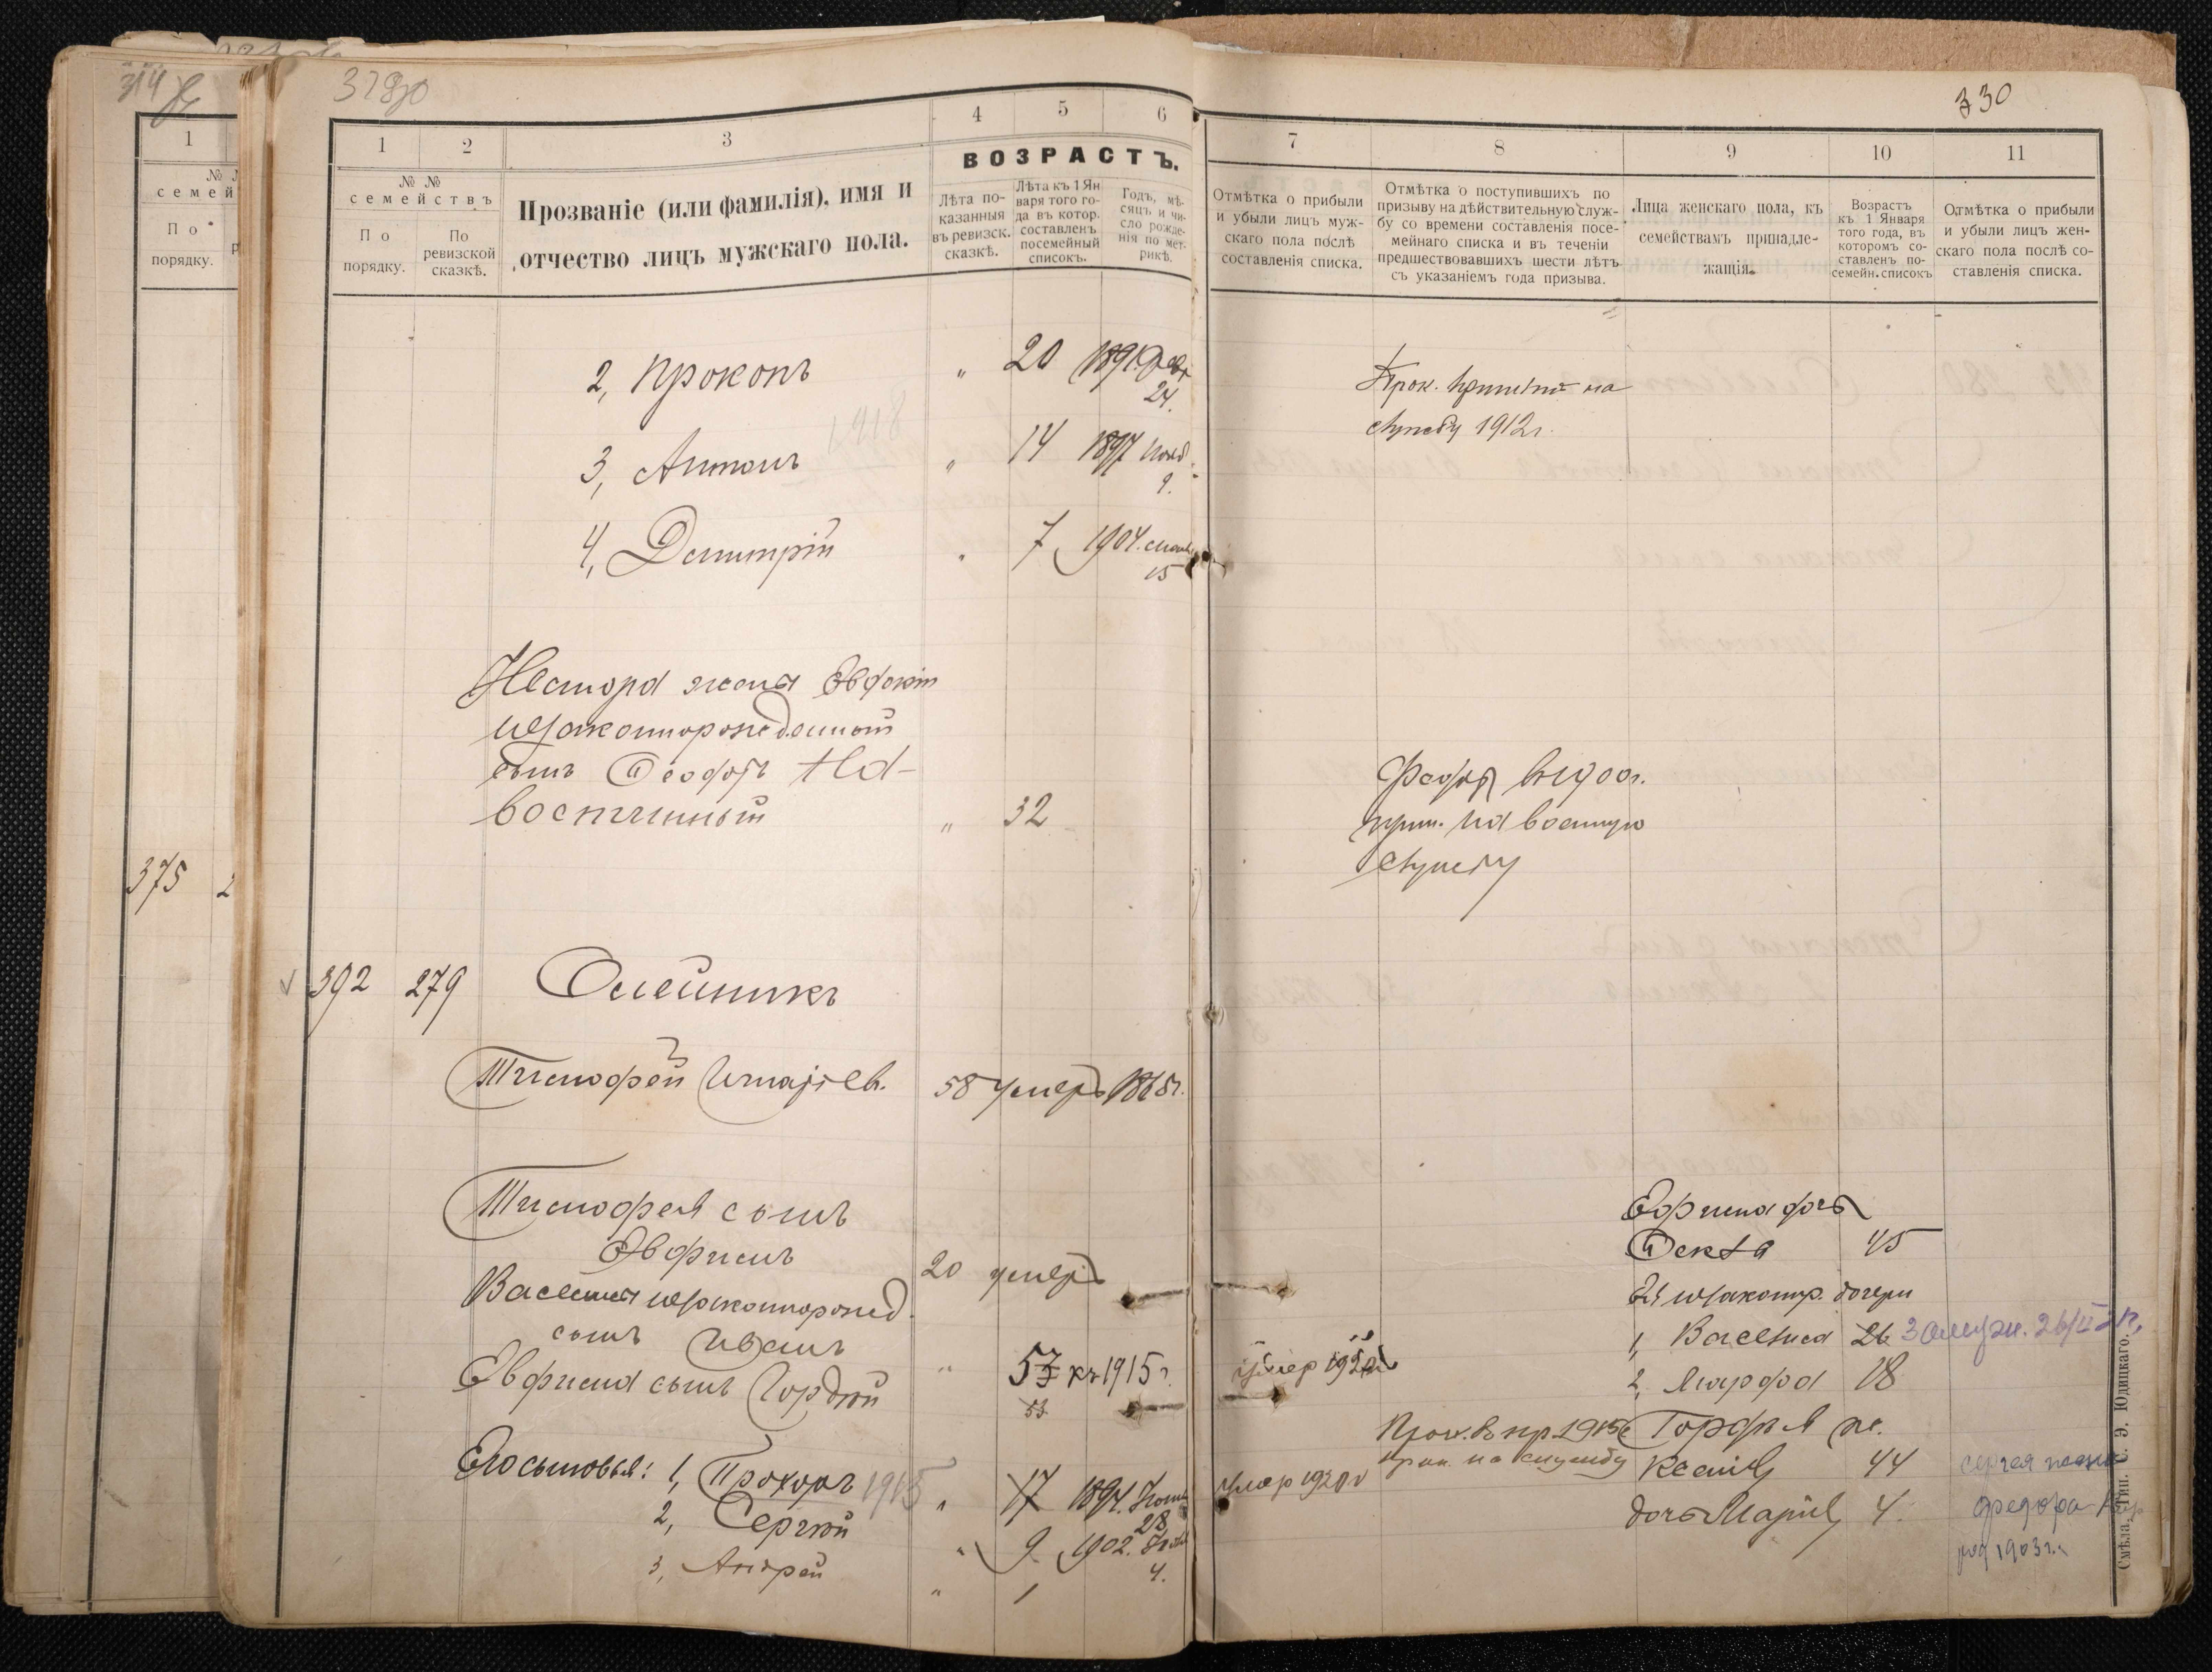 314
375
32930
1
2
3
4
5
6
№ №
семействъ
По порядку.
По ревизской сказкѣ.
Прозваніе (или фамилія), имя и
отчество лицъ мужскаго пола.
ВОЗРАСТЪ.
Лѣта по-
казанныя
въ ревизск.
сказкѣ.
Лѣта къ 1 Ян
варя того го-
да въ котор.
составленъ
посемейный
списокъ.
Годъ, мѣ-
сяцъ и чи-
сло рожде-
нія по мет-
рикѣ.
2, Прокопъ " 20 1891
24.
3, Антонъ 1918 " 14 1897 Нояб.
9.
4, Димитрій " 7 1904.
15
Нестора жена Евфокіи
незаконнорожденный
сынъ Феодоръ На-
воспитный " 32
392 279 Олейникъ
Тимофей Игнатіев. 58 умеръ 1868г.
Тимофея сынъ
Евфимъ 20 умеръ
Василины незаконнорожд.
сынъ Иванъ " 53 къ 1915 г.
Евфима сынъ Гордѣй 53
Его сыновья: 1, Прохоръ 1915 " 17 1894. Іюня
28
2, Сергѣй " 9 1902.
4.
3, Андрей " 1
330
7
8
9
10
11
Отмѣтка о прибыли
и убыли лицъ муж-
скаго пола послѣ
составленія списка.
Отмѣтка о поступившихъ по
призыву на дѣйствительную служ-
бу со времени составленія посе-
мейнаго списка и въ теченіи
предшествовавшихъ шести лѣтъ
съ указаніемъ года призыва.
Лица женскаго пола, къ
семействамъ принадле-
жащія.
Возрастъ
къ 1 Января
того года, въ
которомъ со-
ставленъ по-
семейн. списокъ
Отмѣтка о прибыли
и убыли лицъ жен-
скаго пола послѣ со-
ставленія списка.
Прок. принятъ на
службу 1912г.
Феодоръ въ 1900г.
прин. на военную
службу
Ефима дочь
Фекла 45
Ея незаконр. дочери
1, Василиса 26 Замуж. 26/II
2, Марфа 18
умер 1920
Прох. въ пр. 1915г Гордѣя ж.
прин. на службу Ксенія 44
умер 1920г
дочь Марія 4.
Сергея жена
Федора
род 1903г.
Смѣла, Тип. С. Э. Юдицкаго.